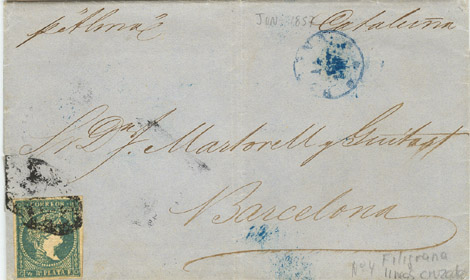 Cataluña
JUN. 1857
Sr. Dn. J. Martorell y Guitart
Barcelona
CORREOS
PLATA F
Nº 4
Filigrana
lineas cruzadas